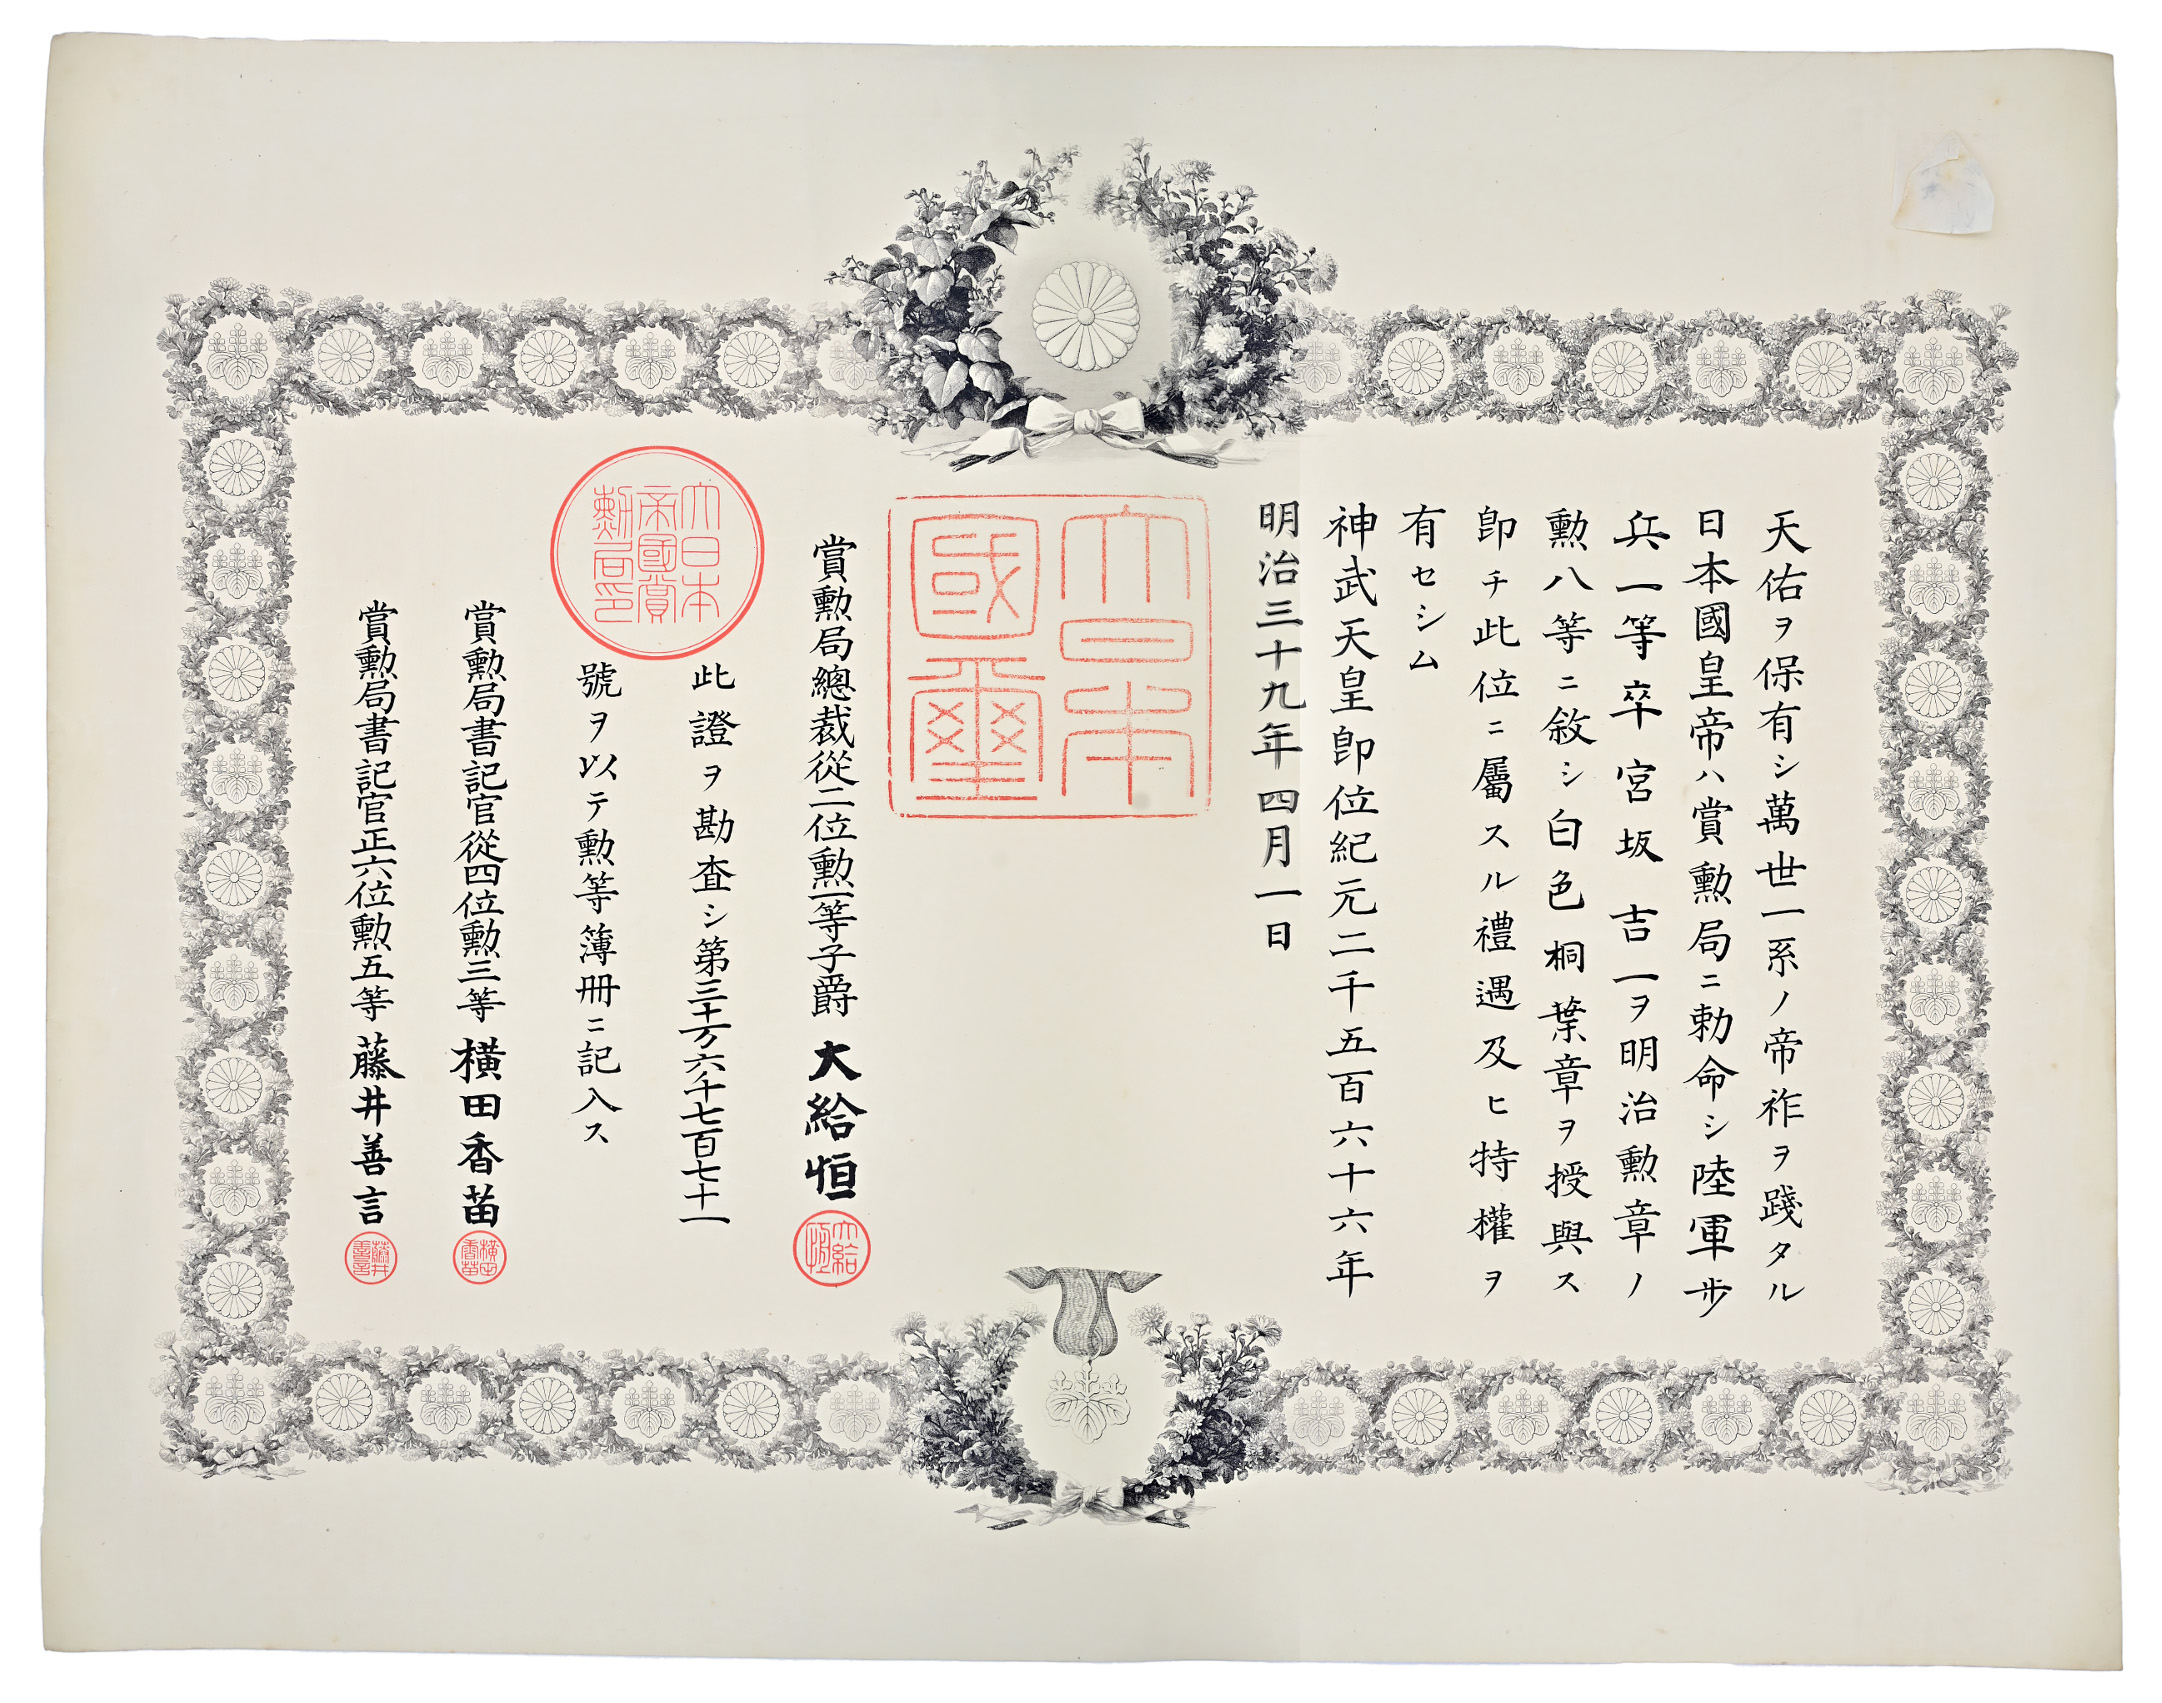 天佑ヲ保有シ萬世一系ノ帝祚ヲ踐タル
日本國皇帝ハ賞勲局ニ勅命シ陸軍歩
兵一等卒宮坂吉一ヲ明治勲章ノ
勲八等ニ敘シ白色桐葉章ヲ授與ス
即チ此位ニ屬スル禮遇及ヒ特權ヲ
有セシム
神武天皇即位紀元二千五百六十六年
明治三十九年四月一日
大日本
國璽
賞勲局總裁從二位勲一等子爵大給恒
大給恒
此證ヲ勘査シ第三十万六千七百七十一
號ヲ以テ勲等簿冊ニ記入ス
大日本
帝國賞
勲局印
賞勲局書記官從四位勲三等橫田香苗
橫田
香苗
賞勲局書記官正六位勲五等藤井善言
藤井
善言